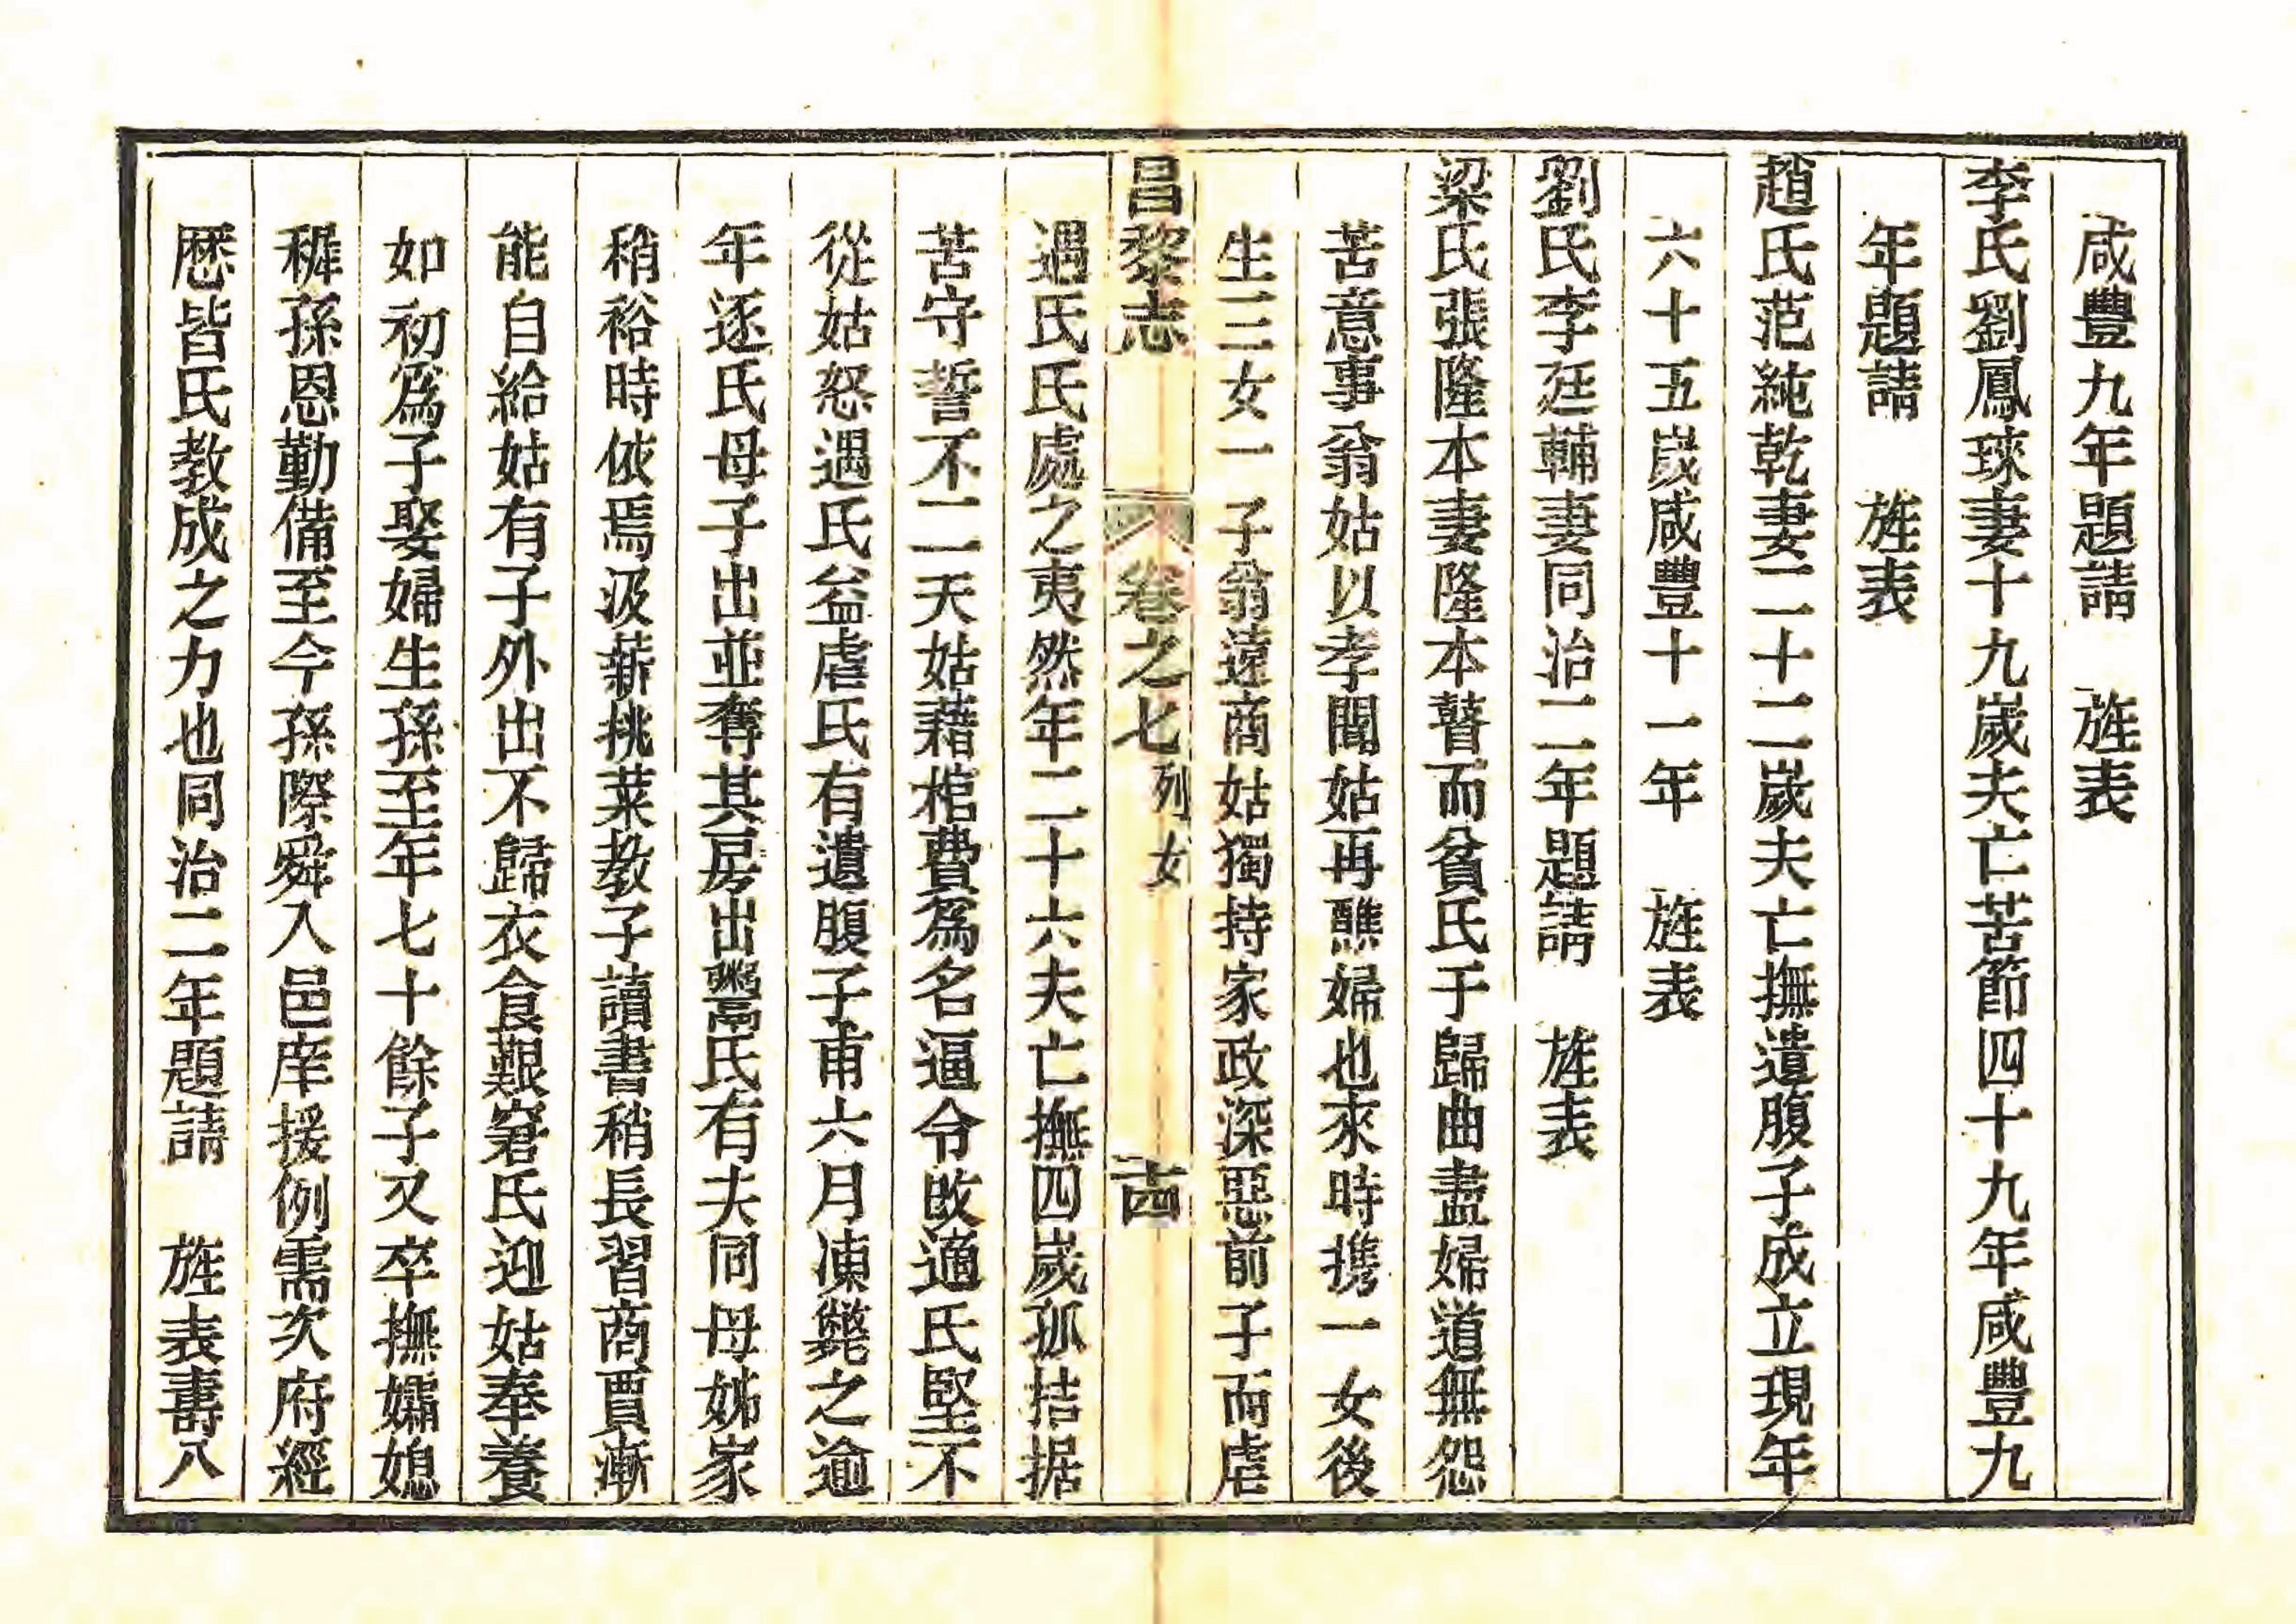 咸豐九年題請　旌表
李氏劉鳳琜妻十九嵗夫亡苦節四十九年咸豐九
年題請　旌表
趙氏范純乾妻二十二嵗夫亡撫遺腹子成立現年
六十五嵗咸豐十一年　旌表
劉氏李廷輔妻同治二年題請　旌表
梁氏張隆本妻隆本瞽而貧氏于歸曲盡婦道無怨
苦意事翁姑以孝聞姑再醮婦也來時攜一女後
生三女一子翁遠商姑獨持家政深惡前子而虐
昌黎志　卷之七　列女　十四
遇氏氏處之夷然年二十六夫亡撫四嵗孤拮据
苦守誓不二天姑藉棺費爲名逼令改適氏堅不
從姑怒遇氏益虐氏有遺腹子甫六月凍斃之逾
年逐氏母子出並奪其房出鬻氏有夫同母姊家
稍裕時依焉汲薪挑菜教子讀書稍長習商賈漸
能自給姑有子外出不歸衣食艱窘氏迎姑奉養
如初爲子娶婦生孫至年七十餘子又卒撫孀媳
穉孫恩勤備至今孫際舜入邑庠援例需次府經
歷皆氏教成之力也同治二年題請　旌表壽八